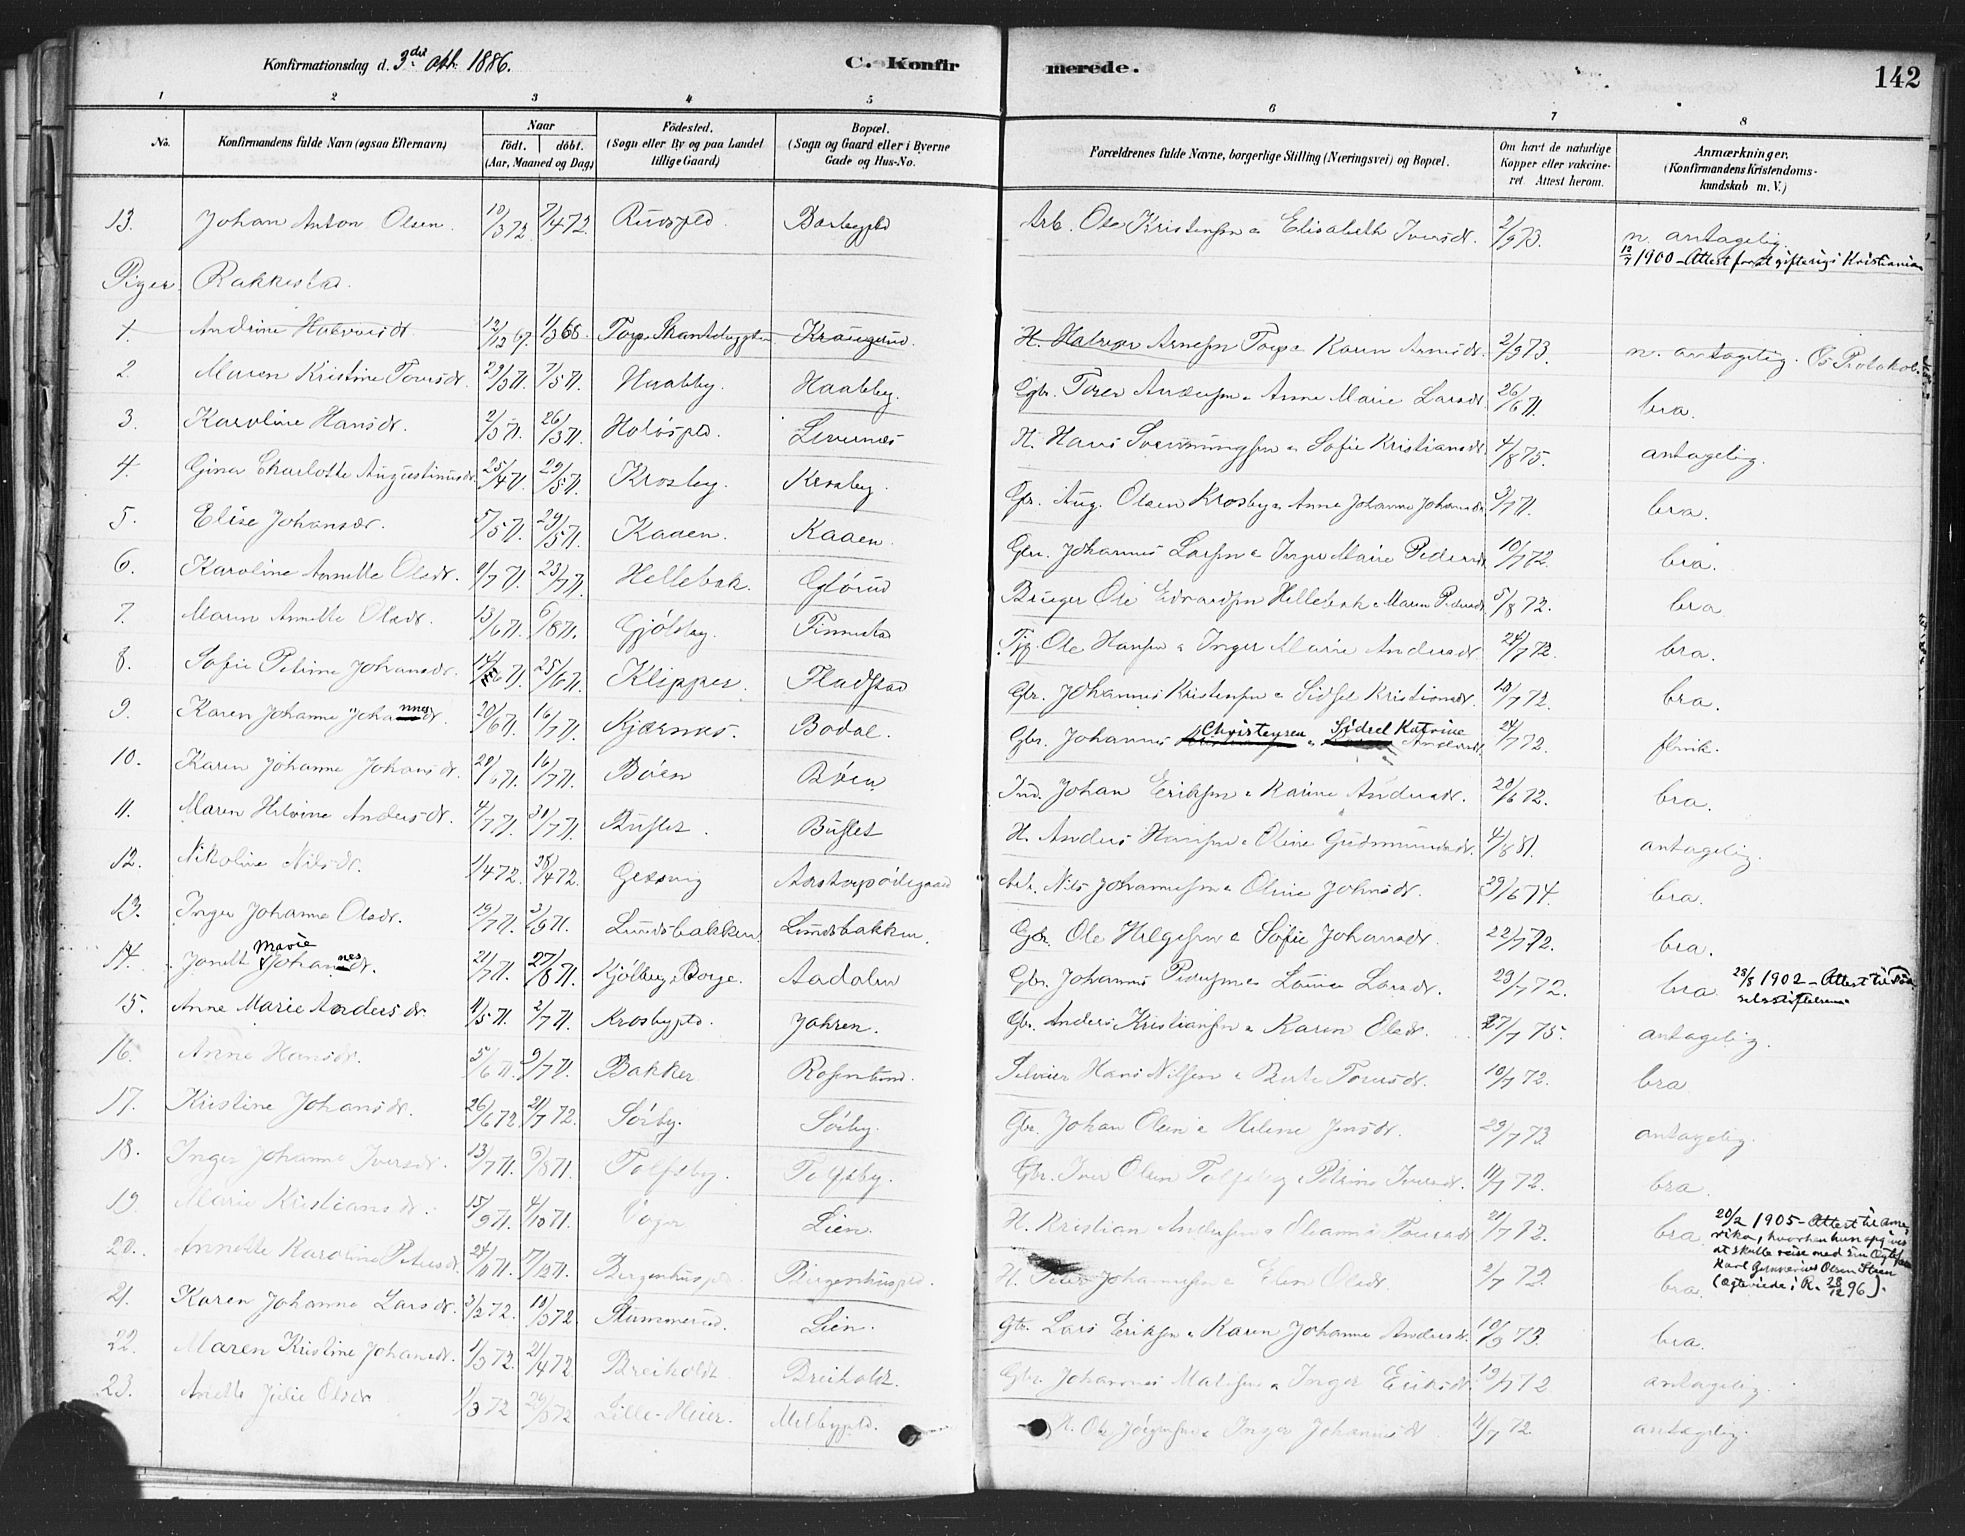 Konfirmationsdag d. 3die Oktb. 1886. C. Konfirmerede. 142
1 2 3 4 5 6 7 8
No. Konfirmandens fulde Navn (ogsaa Efternavn) Naar født. døbt. (Aar, Maaned og Dag) Fødested. (Sogn eller By og paa Landet tillige Gaard) Bopæl. (Sogn og Gaard eller i Byerne Gade og Hus-No. Forældrenes fulde Navne, borgerlige Stilling (Næringsvei) og Bopæl. Om havt de naturlige Kopper eller vakcineret. Attest herom. Anmærkninger. (Konfirmandens Kristendomskundskab m. V.)
13. Johan Anton Olsen 10/3 72 7/4 72 Rudspld. Barbypld Arb. Ole Kristensen & Elisabeth Iversdr. 2/9 73. n. antagelig.
12/7 1900 – Attest for at gifte sig i Kristiania
Piger. Rakkestad.
1 Andrine Halvorsdr 12/12 67. 1/3 68. Torp Skantebygden Kraugerud. H. Halvor Arnesen Torp & Karen Arnesdr. 2/9 73. n. antagelig. Os Protokol
2 Maren Kristine Toresdr. 29/3 71. 7/5 71. Haabby. Haabby. Gbr. Tore Andersen & Anne Marie Larsdr 26/6 71. bra.
3. Karoline Hansdr. 2/3 71. 26/3 71. Holøspld. Levernæs H. Hans Svenningsen & Sofie Kristiansdr 4/8 75. antagelig.
4 Gina Charlotte Augustinusdr. 25/4 71. 29/5 71. Krosby. Krosby. Gbr. Aug. Olsen Krosby & Anne Johanne Johansdr 3/7 71. bra.
5. Elise Johansdr. 5/5 71. 29/5 71. Kaaen. Kaaen. Gbr. Johannes Larsen & Inger Marie Pedersdr 10/7 72. bra.
6. Karoline Annette Olsdr. 9/7 71. 23/7 71. Hellebæk. Gjørud Bruger Ole Edvardsen Hellebæk & Maren Pedersdr 5/8 72. bra
7. Maren Annette Olsdr. 13/6 71. 6/8 71. Gjølsby. Finnestad Ole Hansen & Inger Marie Andersdr. 24/7 72. bra.
8 Sofie Petrine Johansdr. 14/6 71. 25/6 71. Klipper. Fladstad Gbr. Johannes Kristensen & Sidsel Kristiansdr. 18/7 72. bra.
9. Karen Johanne Johannesdr. 20/6 71. 16/7 71. Kjærnes. Bodal. Gbr. Johannes Christensen & Sidsel Katrine Andersdr. 24/7 72. flink.
10. Karen Johanne Johansdr. 20/6 71. 16/7 71. Bøen Bøen Ind. Johan Eriksen & Karine Andersdr. 20/6 72. bra.
11. Maren Helvine Andersdr. 4/7 71. 30/7 71. Buflet. Buflet H. Anders Hansen & Oline Gudmundsdr. 4/8 81. antagelig.
12. Nikoline Nilsdr. 1/4 72. 28/4 72. Gjesvig Aastorpødegaard Arb. Nils Johannesen & Oline Johnsdr. 29/6 74. bra.
13. Inger Johanne Olsdr. 19/7 71. 3/9 71. Lundsbakken. Lundsbakken. Gbr. Ole Helgesen & Sofie Johansdr. 22/7 72. bra.
14. Jonette Marie Johannesdr. 21/7 71. 27/8 71. Kjølberg Borge. Aadalen Gbr. Johannes Pedersen & Lovise Larsdr. 23/7 72. bra 28/8 1902 – Attest til
15. Anne Marie Andersdr 11/5 71. 2/7 71. Krosbypld. Jahren. Gbr. Anders Kristiansen & Karen Olsdr. 27/7 75. antagelig.
16. Anne Hansdr. 5/6 71. 9/7 71. Bakker Rosenlund. Selveier Hans Nilsen & Berte Toresdr. 10/7 72. bra
17. Kristine Johansdr. 26/6 72 21/7 72. Sørby. Sørby. Gbr. Johan Olsen & Helene Jensdr. 29/7 73. antagelig.
18. Inger Johanne Iversdr. 13/7 71. 9/8 71. Tolfsby. Tolfsby. Gbr. Iver Olsen Tolfsby & Petrine Iversdr. 11/7 72. bra
19 Marie Kristiansdr. 15/9 71. 4/10 71. Lien. H. Kristian Andersen & Toresdr 21/7 72. bra. 20/2 1905 – Attest til Amerika, hvorhen hun opgives
at skulle reise med sin Ægtefælle
Karl Gunnerius Olsen Steen
(ægteviede i R. 28/12 96).
20. Annette Karoline Petersdr. 24/11 71. 17/12 71. Bergenhuspld. Bergenhuspld. H. Peter Johannesen & Elen Olsdr. 2/7 72. bra.
21. Karen Johanne Larsdr. 3/2 72. 10/3 72 Stummerud. Lien. Gbr. Lars Eriksen & Karen Johanne Andersdr. 10/9 73. bra.
22. Maren Kristine Johansdr. 1/3 72. 21/4 72. Breiholdt Breiholdt. Gbr. Johannes Mathisen & Inger Eriksdr. 19/7 72 antagelig.
23. Anette Julie Olsdr 1/3 72 29/3 72 Lille-Heier. Melbypld. H. Ole Jørgensen & Inger Johannesdr 11/7 72. antagelig.